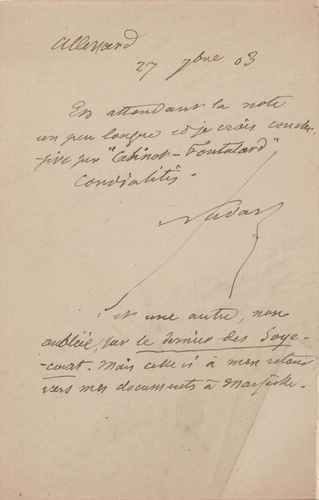 Allevard
27 7bre 03
En attendant la note
un peu longue et je crois conclu-
sive sur "Cabinot-Fontalard"
Cordialités.
Nadar
et une autre, non
oubliée, sur le dernier des Soye-
court. Mais celle ci à mon retour
vers mes documents à Marseille.